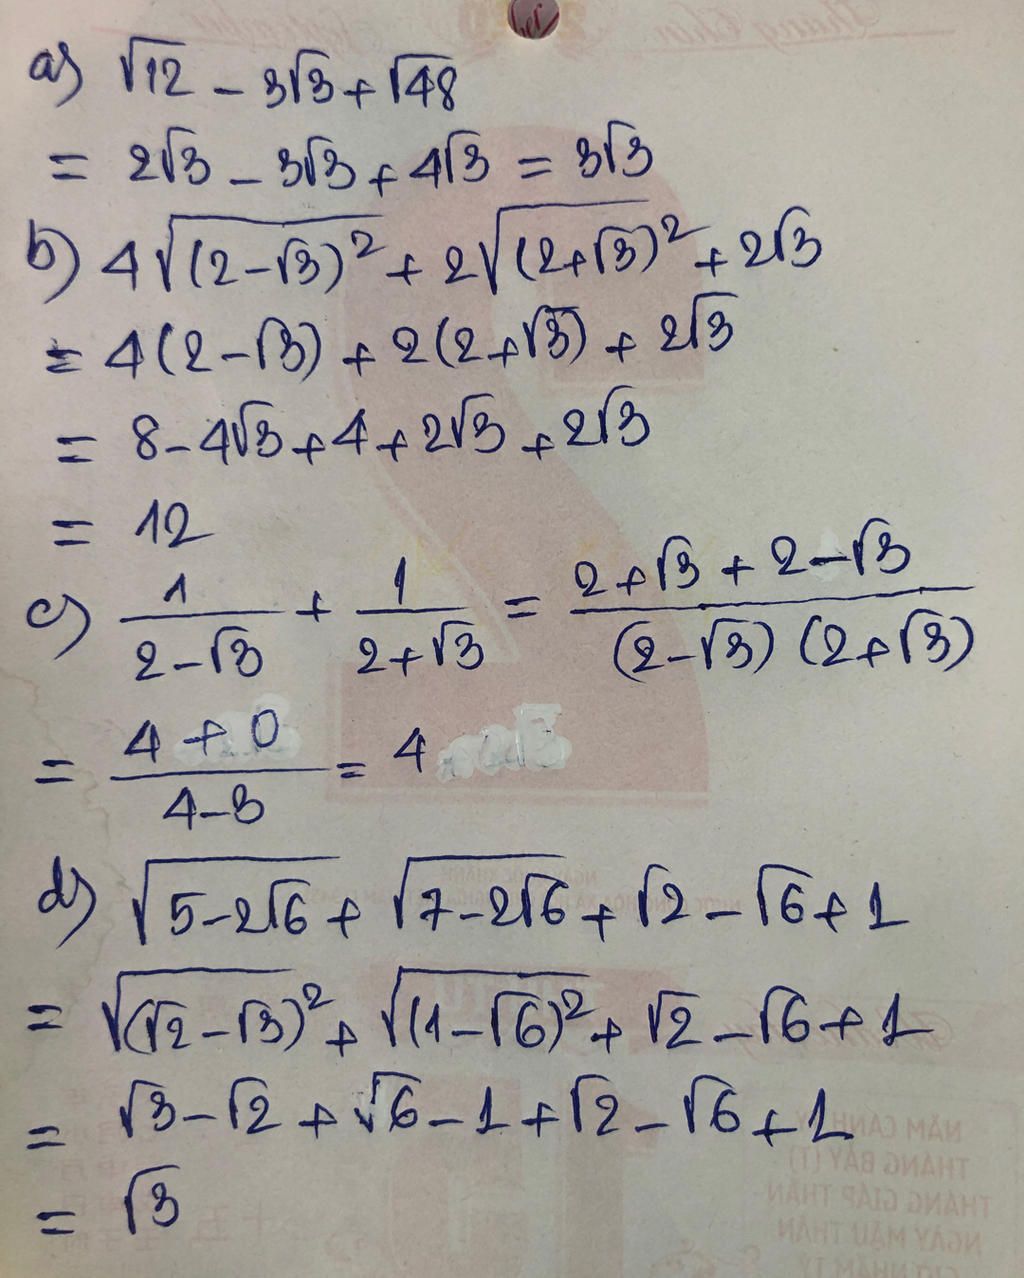 a) √12 - 3√3 + √48
= 2√3 - 3√3 + 4√3 = 3√3
b) 4√(2-√3)² + 2√(2+√3)² + 2√3
= 4(2-√3) + 2(2+√3) + 2√3
= 8 - 4√3 + 4 + 2√3 + 2√3
= 12
c) 1/(2-√3) + 1/(2+√3) = (2+√3 + 2-√3)/((2-√3)(2+√3))
= (4+0)/(4-3) = 4
d) √(5-2√6) + √(7-2√6) + √2 - √6 + 1
= √(√2-√3)² + √(1-√6)² + √2 - √6 + 1
= √3 - √2 + √6 - 1 + √2 - √6 + 1
= √3
NĂM CANH TÝ
THÁNG BẢY (T)
THÁNG GIÁP THÂN
NGÀY MẬU THÂN